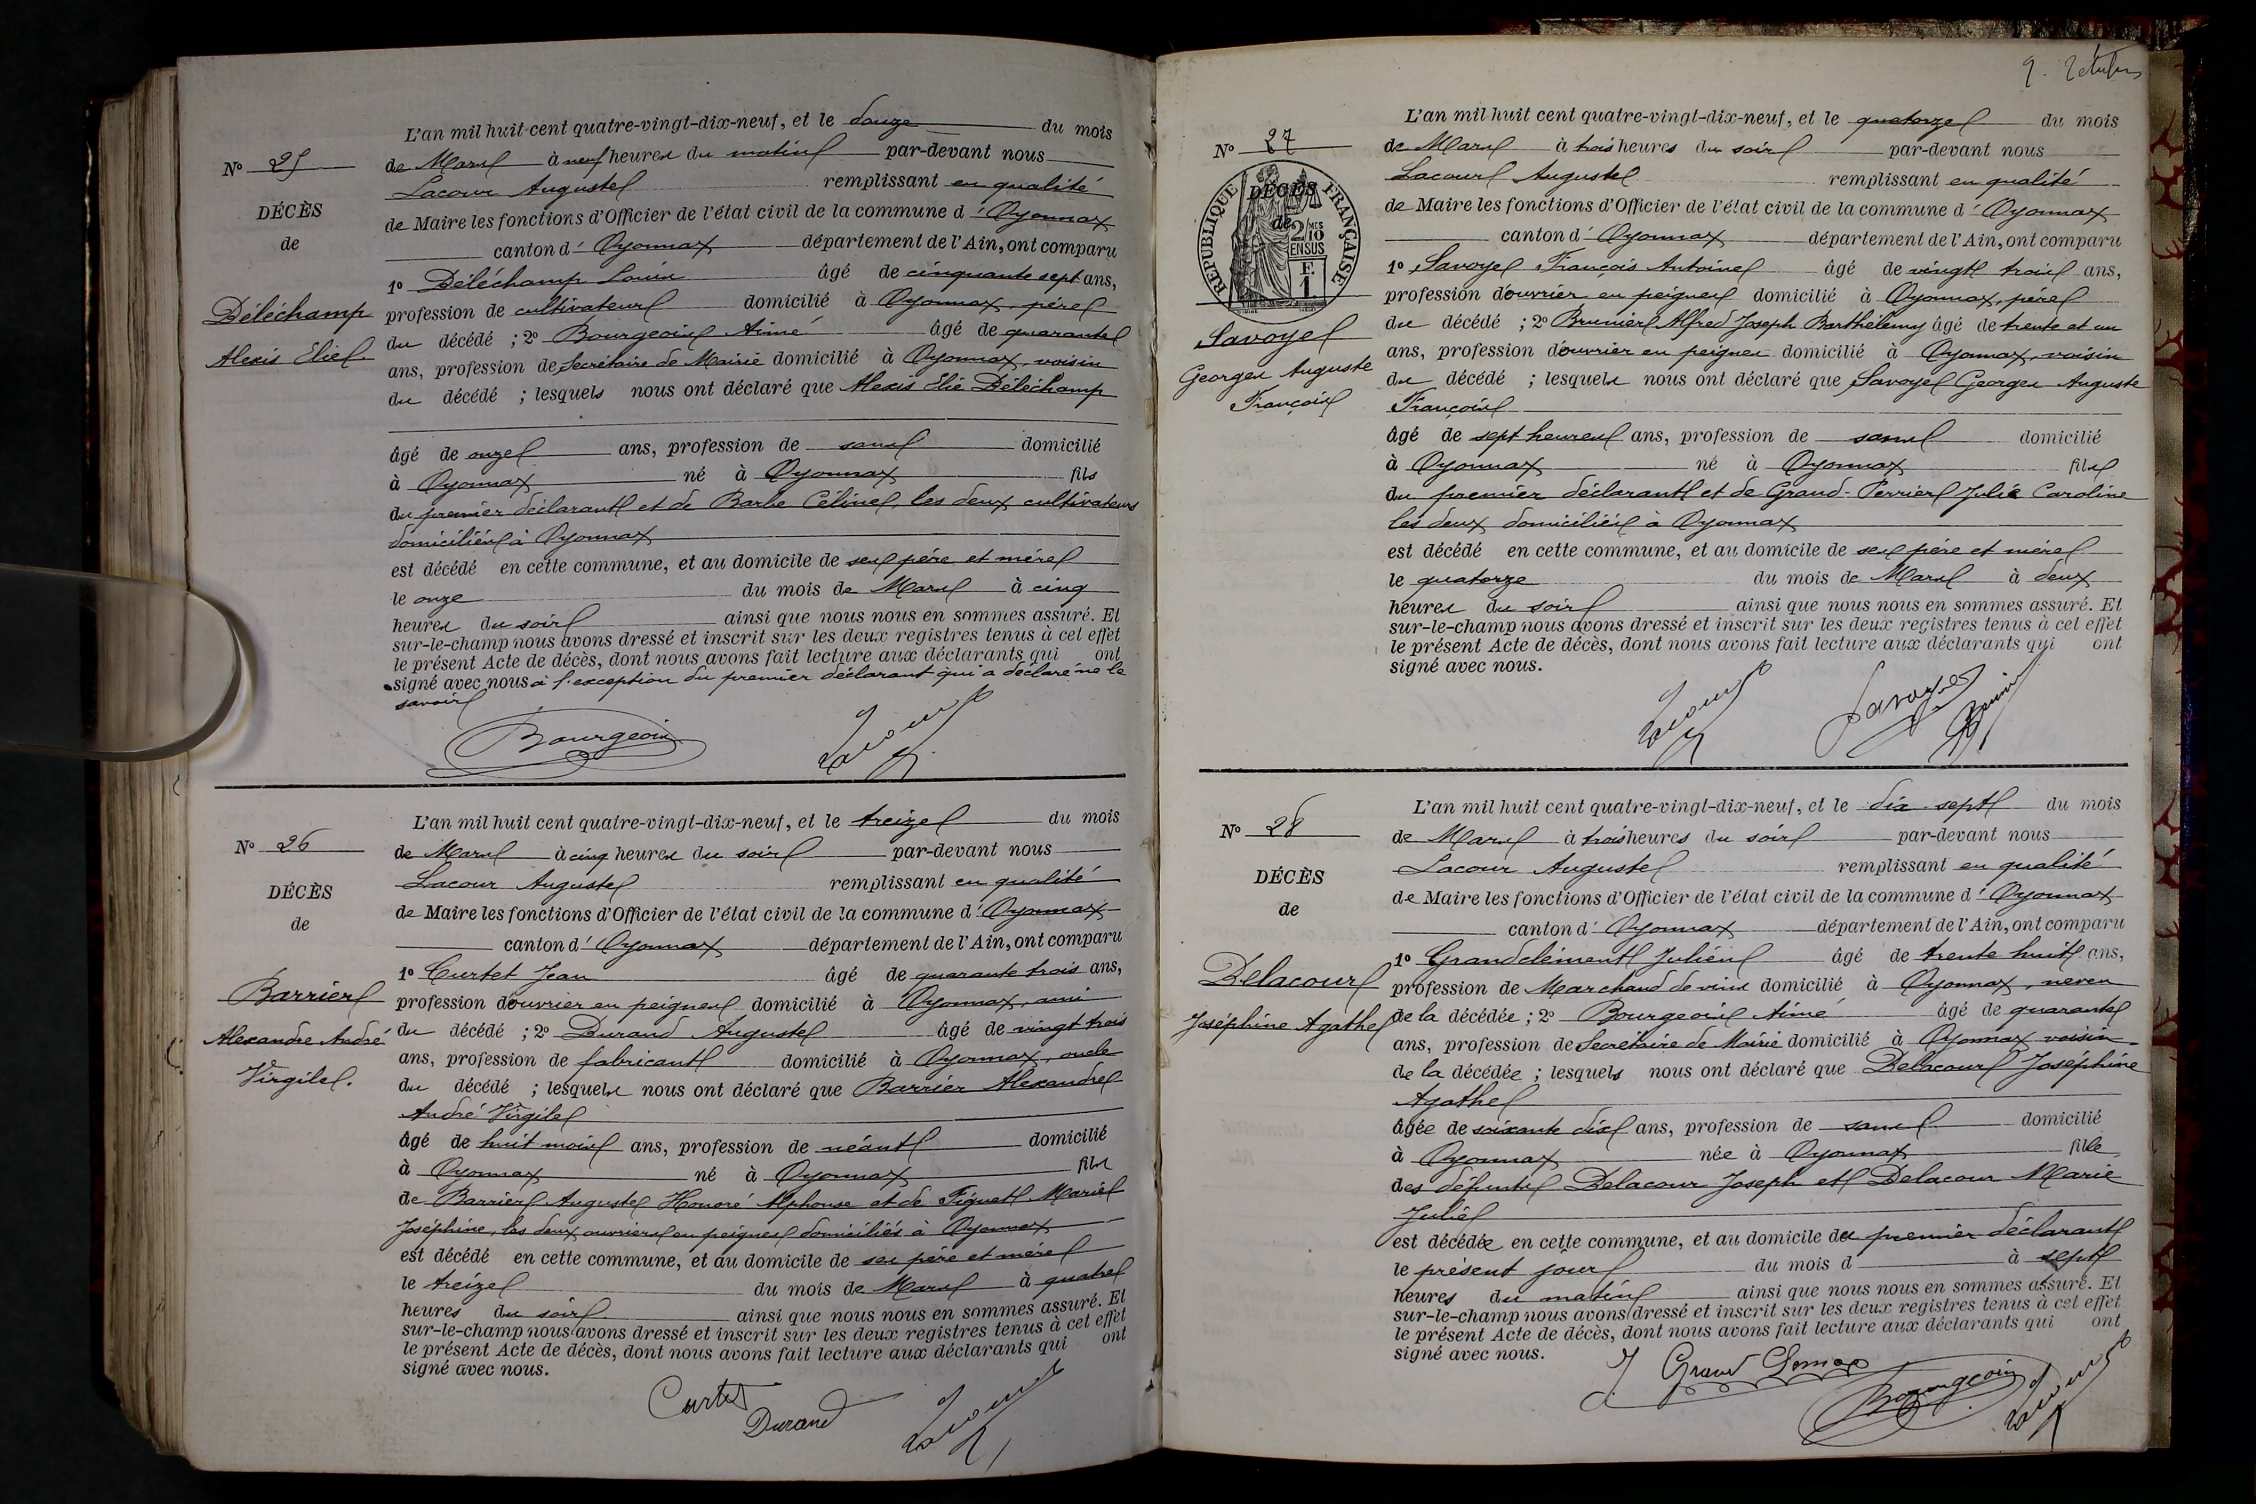 N° 25
DÉCÈS
de
Déléchamp
Alexis Elie
L'an mil huit cent quatre-vingt-dix-neuf, et le douze du mois
de Mars à neuf heures du matin par-devant nous
Lacour Auguste remplissant en qualité
de Maire les fonctions d'Officier de l'état civil de la commune d'Oyonnax
canton d'Oyonnax département de l'Ain, ont comparu
1° Déléchamp Louis âgé de cinquante sept ans,
profession de cultivateur domicilié à Oyonnax, père
du décédé ; 2° Bourgeois Aimé âgé de quarante
ans, profession de Secrétaire de Mairie domicilié à Oyonnax, voisin
du décédé ; lesquels nous ont déclaré que Alexis Elie Déléchamp
âgé de onze ans, profession de sans domicilié
à Oyonnax né à Oyonnax fils
du premier déclarant et de Barbe Céline, les deux cultivateurs
domiciliés à Oyonnax
est décédé en cette commune, et au domicile de ses père et mère
le onze du mois de Mars à cinq
heures du soir ainsi que nous nous en sommes assuré. Et
sur-le-champ nous avons dressé et inscrit sur les deux registres tenus à cet effet
le présent Acte de décès, dont nous avons fait lecture aux déclarants qui ont
signé avec nous à l'exception du premier déclarant qui a déclaré ne le
savoir
Bourgeois Lacour
N° 26
DÉCÈS
de
Barrier
Alexandre André
Virgile.
L'an mil huit cent quatre-vingt-dix-neuf, et le treize du mois
de Mars à cinq heures du soir par-devant nous
Lacour Auguste remplissant en qualité
de Maire les fonctions d'Officier de l'état civil de la commune d'Oyonnax
canton d'Oyonnax département de l'Ain, ont comparu
1° Curtet Jean âgé de quarante trois ans,
profession d'ouvrier en peignes domicilié à Oyonnax, ami
du décédé ; 2° Durand Auguste âgé de vingt trois
ans, profession de fabricant domicilié à Oyonnax, oncle
du décédé ; lesquels nous ont déclaré que Barrier Alexandre
André Virgile
âgé de huit mois ans, profession de néant domicilié
à Oyonnax né à Oyonnax fils
de Barrier Auguste Honoré Alphonse et de Figuet Marie
Joséphine, les deux ouvriers en peignes domiciliés à Oyonnax
est décédé en cette commune, et au domicile de ses père et mère
le treize du mois de Mars à quatre
heures du soir ainsi que nous nous en sommes assuré. Et
sur-le-champ nous avons dressé et inscrit sur les deux registres tenus à cet effet
le présent Acte de décès, dont nous avons fait lecture aux déclarants qui ont
signé avec nous.
Curtet Durand Lacour
N° 27
DÉCÈS
de
RÉPUBLIQUE FRANÇAISE
2/10 MES
EN SUS
F
1
Savoye
Georges Auguste
François
L'an mil huit cent quatre-vingt-dix-neuf, et le quatorze du mois
de Mars à trois heures du soir par-devant nous
Lacour Auguste remplissant en qualité
de Maire les fonctions d'Officier de l'état civil de la commune d'Oyonnax
canton d'Oyonnax département de l'Ain, ont comparu
1° Savoye François Antoine âgé de vingt trois ans,
profession d'ouvrier en peignes domicilié à Oyonnax, père
du décédé ; 2° Brunier Alfred Joseph Barthélemy âgé de trente et un
ans, profession d'ouvrier en peignes domicilié à Oyonnax, voisin
du décédé ; lesquels nous ont déclaré que Savoye Georges Auguste
François
âgé de sept heures ans, profession de sans domicilié
à Oyonnax né à Oyonnax fils
du premier déclarant et de Grand-Perrier Julie Caroline
les deux domiciliés à Oyonnax
est décédé en cette commune, et au domicile de ses père et mère
le quatorze du mois de Mars à deux
heures du soir ainsi que nous nous en sommes assuré. Et
sur-le-champ nous avons dressé et inscrit sur les deux registres tenus à cet effet
le présent Acte de décès, dont nous avons fait lecture aux déclarants qui ont
signé avec nous.
Lacour Savoye Brunier
N° 28
DÉCÈS
de
Delacour
Joséphine Agathe
L'an mil huit cent quatre-vingt-dix-neuf, et le dix sept du mois
de Mars à trois heures du soir par-devant nous
Lacour Auguste remplissant en qualité
de Maire les fonctions d'Officier de l'état civil de la commune d'Oyonnax
canton d'Oyonnax département de l'Ain, ont comparu
1° Grandclément Julien âgé de trente huit ans,
profession de Marchand de vins domicilié à Oyonnax, neveu
de la décédée ; 2° Bourgeois Aimé âgé de quarante
ans, profession de Secrétaire de Mairie domicilié à Oyonnax voisin
de la décédée ; lesquels nous ont déclaré que Delacour Joséphine
Agathe
âgée de soixante dix ans, profession de sans domicilié
à Oyonnax née à Oyonnax fille
des défunts Delacour Joseph et Delacour Marie
Julie
est décédée en cette commune, et au domicile du premier déclarant
le présent jour du mois d à sept
heures du matin ainsi que nous nous en sommes assuré. Et
sur-le-champ nous avons dressé et inscrit sur les deux registres tenus à cet effet
le présent Acte de décès, dont nous avons fait lecture aux déclarants qui ont
signé avec nous.
Bourgeois Lacour